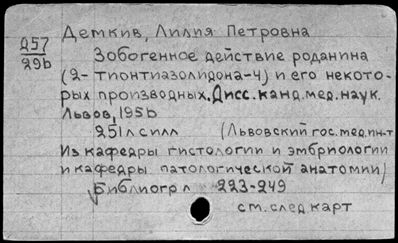 Демкив, Лилия Петровна
Д57
29b
Зобогенное действие роданина
(2-тионтиазолидона-4) и его некото-
рых производных. Дисс. канд. мед. наук.
Львов, 195b
251 л с илл (Львовский гос. мед. ин-т
Из кафедры гистологии и эмбриологии
и кафедры патологической анатомии)
Библиогр л 223-249
см. след карт